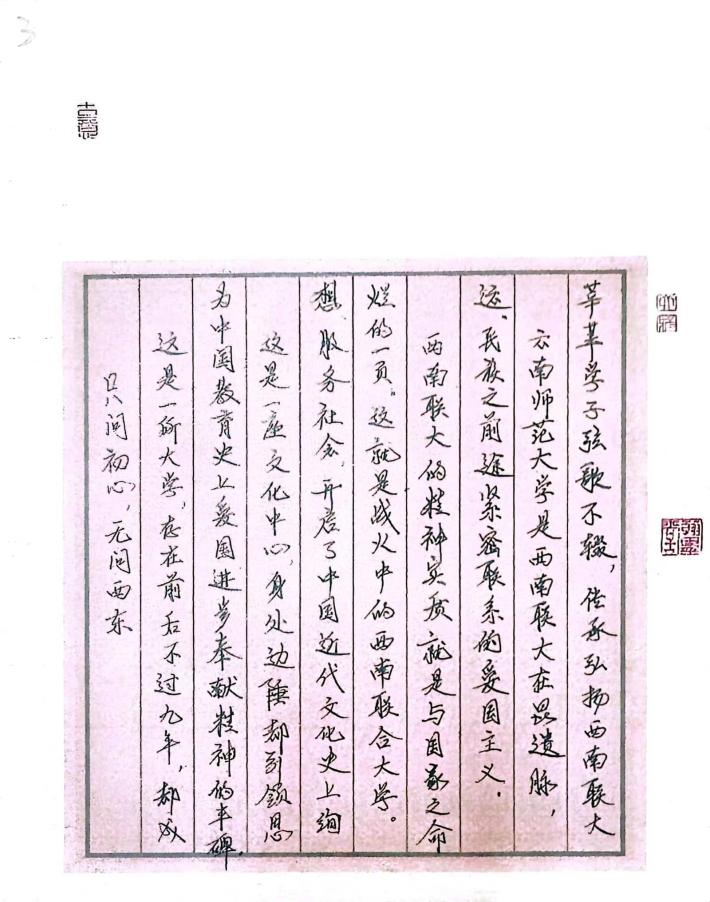 3
只问初心，无问西东
这是一所大学，存在前后不过九年，却成
为中国教育史上爱国进步奉献精神的丰碑，
这是一座文化中心，身处边陲却引领思
想、服务社会，开启了中国近代文化史上绚
烂的一页。这就是战火中的西南联合大学。
西南联大的精神实质就是与国家之命
运、民族之前途紧密联系的爱国主义，
云南师范大学是西南联大在昆遗脉，
莘莘学子弦歌不辍，传承弘扬西南联大